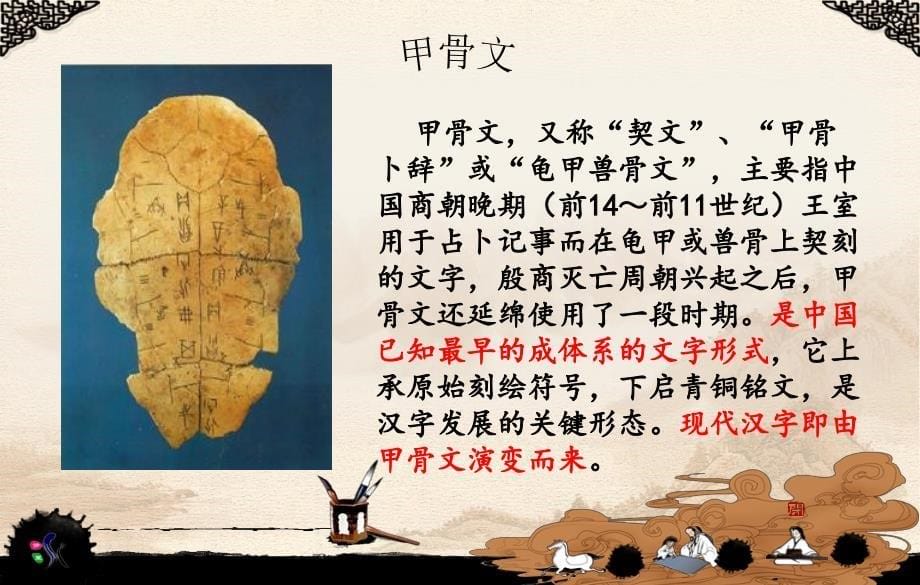 甲骨文
甲骨文，又称“契文”、“甲骨
卜辞”或“龟甲兽骨文”，主要指中
国商朝晚期（前14～前11世纪）王室
用于占卜记事而在龟甲或兽骨上契刻
的文字，殷商灭亡周朝兴起之后，甲
骨文还延绵使用了一段时期。是中国
已知最早的成体系的文字形式，它上
承原始刻绘符号，下启青铜铭文，是
汉字发展的关键形态。现代汉字即由
甲骨文演变而来。